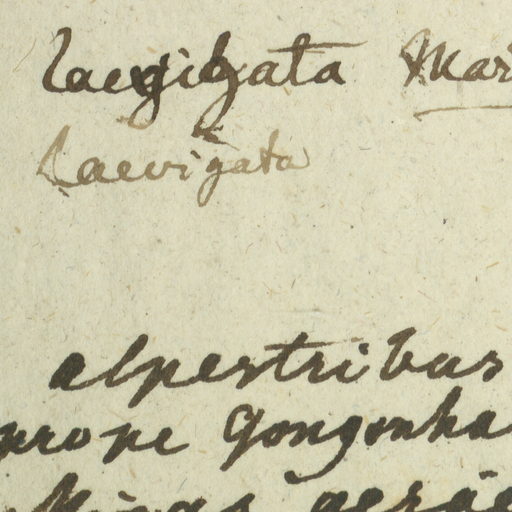 laevigata Mar
Laevigata
alpestribus
prope Gongonha
Minas geraë